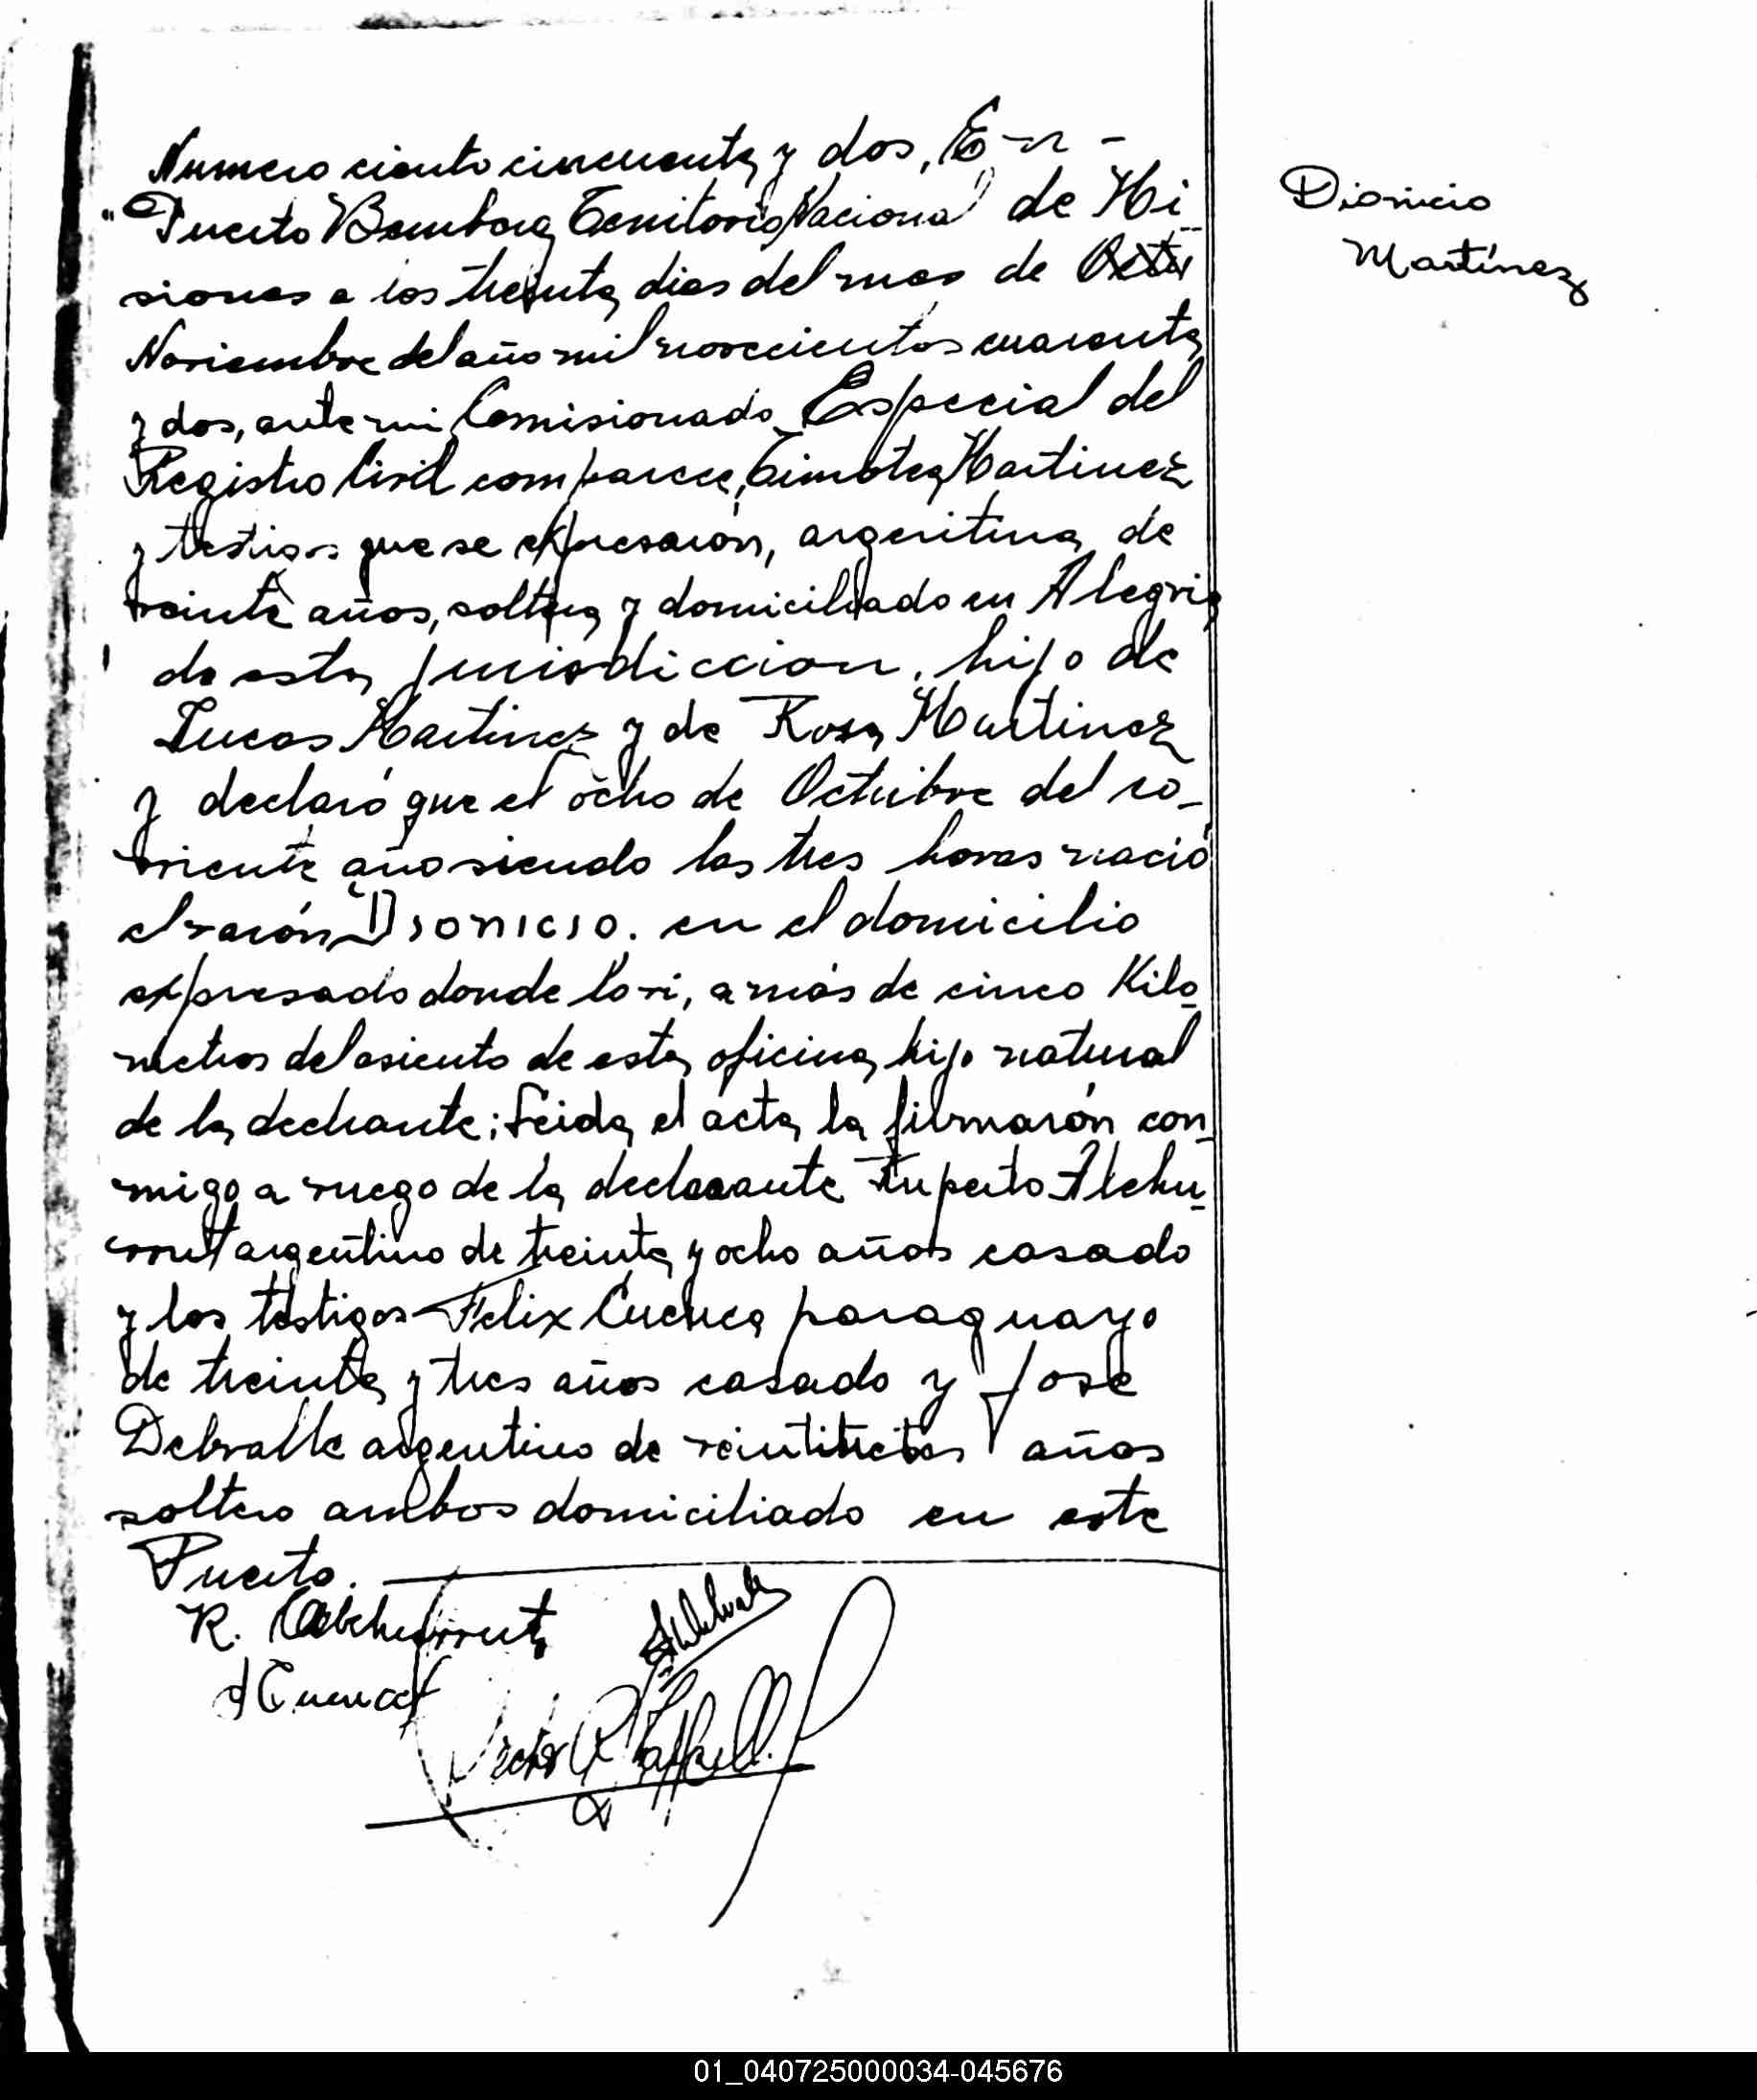 Numero ciento cincuenta y dos. En -
Puerto Bemberg Territorio Nacional de Mi-
siones a los treinta dias del mes de
Noviembre del año mil novecientos cuarenta
y dos, ante mi Comisionado Especial del
Registro Civil comparece, Timotea Martinez
y testigos que se expresarón, argentina de
veinte años, soltera y domiciliado en Alegria
de esta jurisdiccion, hijo de
Lucas Martinez y de Rosa Martinez
y declaró que el ocho de Octubre del co-
rriente año siendo las tres horas nació
el varón Dionicio. en el domicilio
expresado donde lo vi, a más de cinco Kilo-
metros del asiento de esta oficina, hijo natural
de la declrante; Leida el acta la firmarón con-
migo a ruego de la declarante Ruperto Alchu-
rrut argentino de treinta y ocho años casado
y los testigos Felix Cuenca paraguayo
de treinta y tres años casado y Jose
Delvalle argentino de años
soltero ambos domiciliado en este
Puerto.
R.
Cuenca
Dionicio
Martínez
01_040725000034-045676